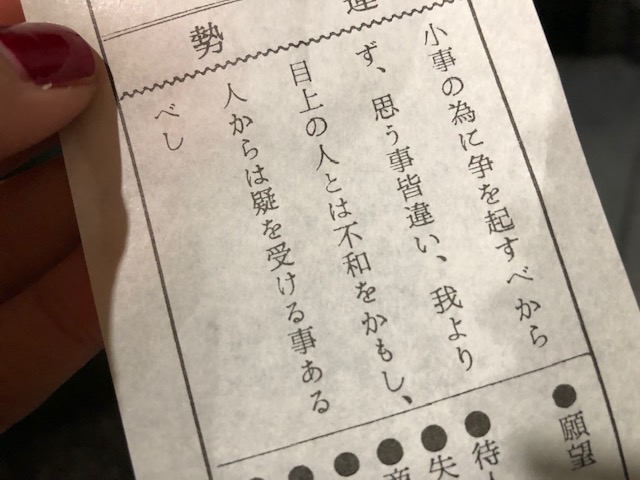 運勢
小事の為に争を起すべから
ず、思う事皆違い、我より
目上の人とは不和をかもし、
人からは疑を受ける事ある
べし
●願望
●待
●失